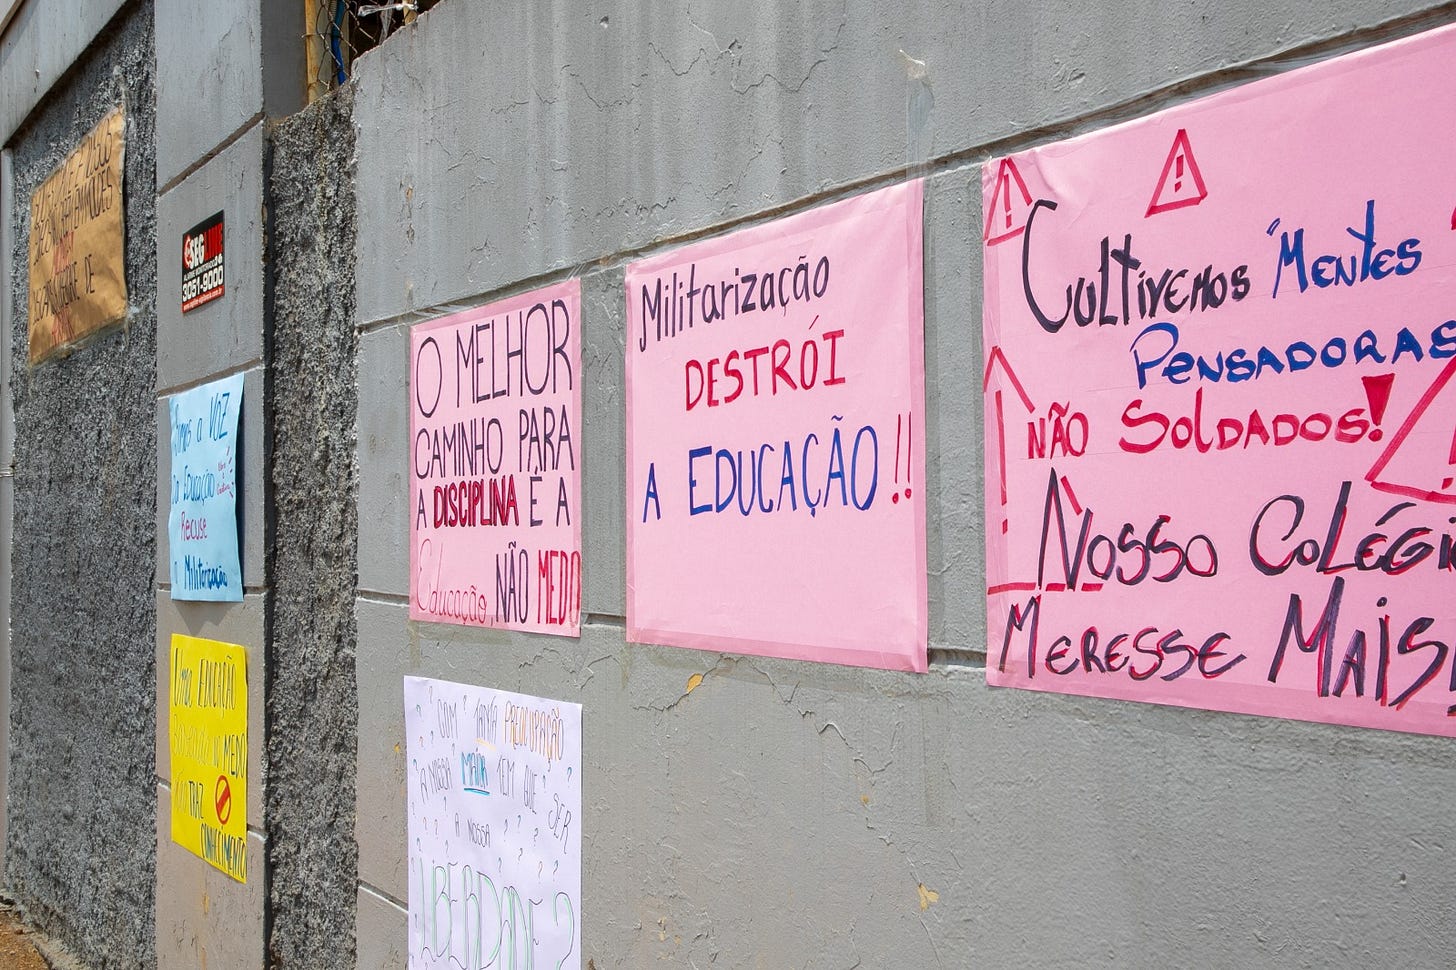 SEGLINE
3051-9000
Somos a VOZ
Da EDUCAÇÃO
Recuse
a Militarização
Uma EDUCAÇÃO
no MEDO
TRAZ
CONHECIMENTO
O MELHOR
CAMINHO PARA
A DISCIPLINA É A
Educação, NÃO MEDO
? COM TANTA PREOCUPAÇÃO
A NOSSA MAIOR TEM QUE SER
A NOSSA
LIBERDADE?
Militarização
DESTRÓI
A EDUCAÇÃO!!
Cultivemos "Mentes
Pensadoras
NÃO SOLDADOS!
Nosso Colégi
Meresse Mais